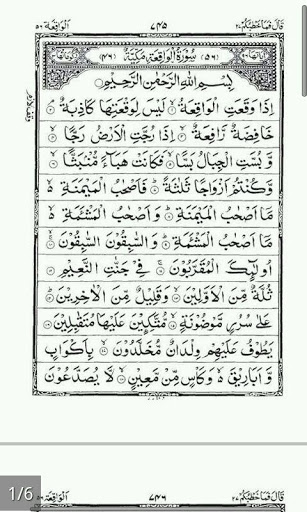 قَالَ فَمَا خَطْبُكُمْ ٢٧ ٧٤٥ اَلْوَاقِعَة ٥٦
(٥٦) سُوْرَةُ الْوَاقِعَةِ مَكِّيَّةٌ (٤٦)
بِسْمِ اللّٰهِ الرَّحْمٰنِ الرَّحِيْمِ
اِذَا وَقَعَتِ الْوَاقِعَةُ ۙ١ لَيْسَ لِوَقْعَتِهَا كَاذِبَةٌ ۘ٢
خَافِضَةٌ رَّافِعَةٌ ۙ٣ اِذَا رُجَّتِ الْاَرْضُ رَجًّا ۙ٤
وَّ بُسَّتِ الْجِبَالُ بَسًّا ۙ٥ فَكَانَتْ هَبَآءً مُّنْۢبَثًّا ۙ٦
وَّ كُنْتُمْ اَزْوَاجًا ثَلٰثَةً ؕ٧ فَاَصْحٰبُ الْمَيْمَنَةِ ۙ۬
مَاۤ اَصْحٰبُ الْمَيْمَنَةِ ؕ٨ وَ اَصْحٰبُ الْمَشْـَٔمَةِ ۙ۬
مَاۤ اَصْحٰبُ الْمَشْـَٔمَةِ ؕ٩ وَ السّٰبِقُوْنَ السّٰبِقُوْنَ ۚۙ١٠
اُولٰٓئِكَ الْمُقَرَّبُوْنَ ۚ١١ فِيْ جَنّٰتِ النَّعِيْمِ ١٢
ثُلَّةٌ مِّنَ الْاَوَّلِيْنَ ۙ١٣ وَ قَلِيْلٌ مِّنَ الْاٰخِرِيْنَ ؕ١٤
عَلٰى سُرُرٍ مَّوْضُوْنَةٍ ۙ١٥ مُّتَّكِـِٕيْنَ عَلَيْهَا مُتَقٰبِلِيْنَ ١٦
يَطُوْفُ عَلَيْهِمْ وِلْدَانٌ مُّخَلَّدُوْنَ ۙ١٧ بِاَكْوَابٍ
وَّ اَبَارِيْقَ ۙ۬ وَ كَاْسٍ مِّنْ مَّعِيْنٍ ۙ١٨ لَّا يُصَدَّعُوْنَ
1/6
قَالَ فَمَا خَطْبُكُمْ ٢٧ ٧٤٦ اَلْوَاقِعَة ٥٦